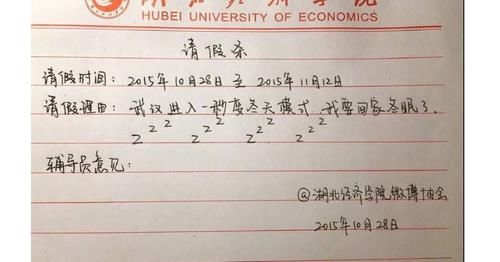 湖北经济学院
HUBEI UNIVERSITY OF ECONOMICS
请假条
请假时间：2015年10月28日 至 2015年11月12日
请假理由：武汉进入一秒变冬天模式，我要回家冬眠了．
z z z z z z z z z z z z
辅导员意见：
@湖北经济学院微博协会
2015年10月28日